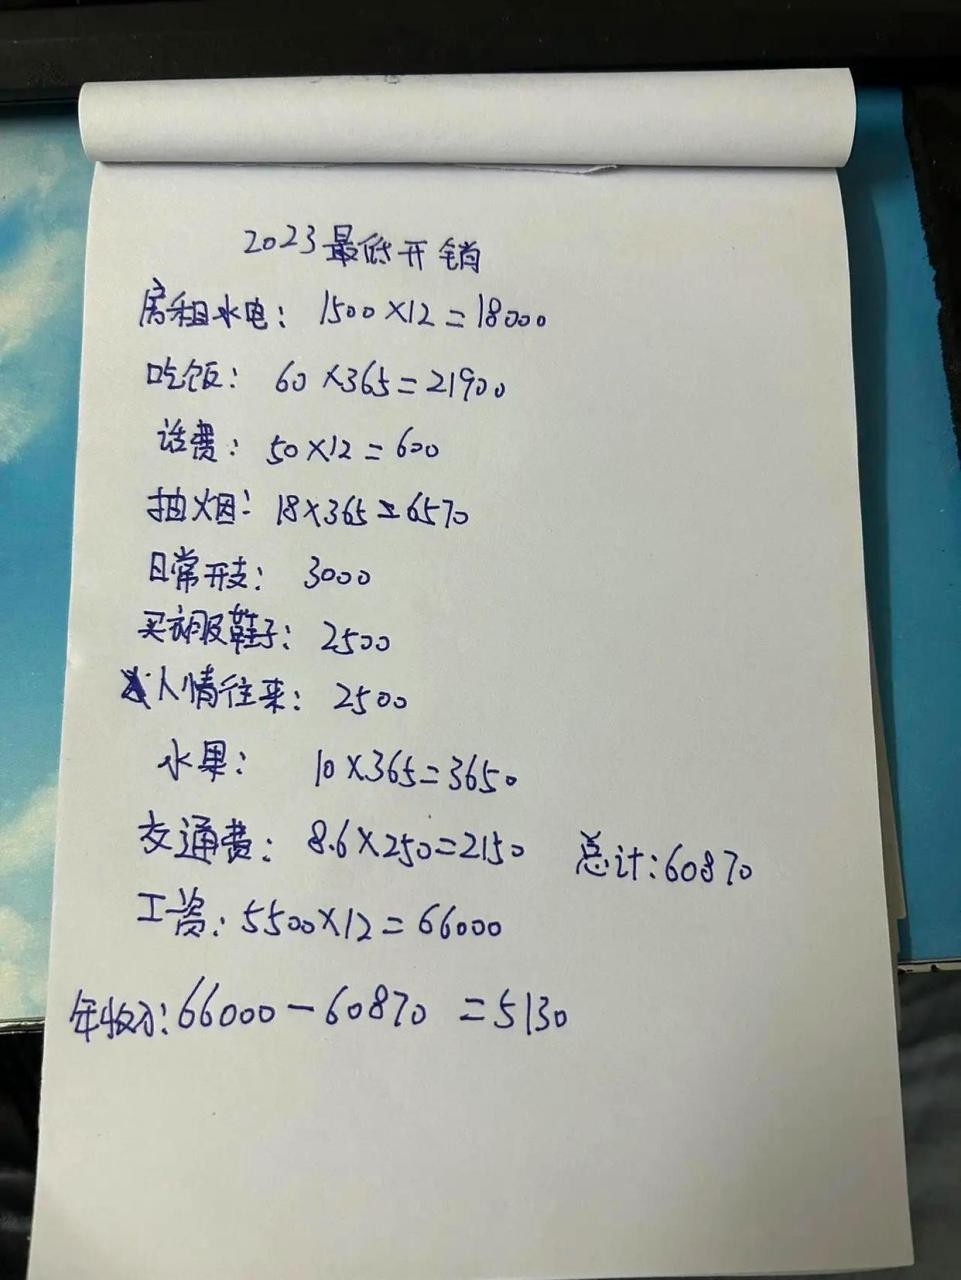 2023最低开销
房租水电: 1500×12=18000
吃饭: 60×365=21900
话费: 50×12=600
抽烟: 18×365=6570
日常开支: 3000
买衣服鞋子: 2500
人情往来: 2500
水果: 10×365=3650
交通费: 8.6×250=2150 总计:60870
工资: 5500×12=66000
年收入:66000-60870=5130